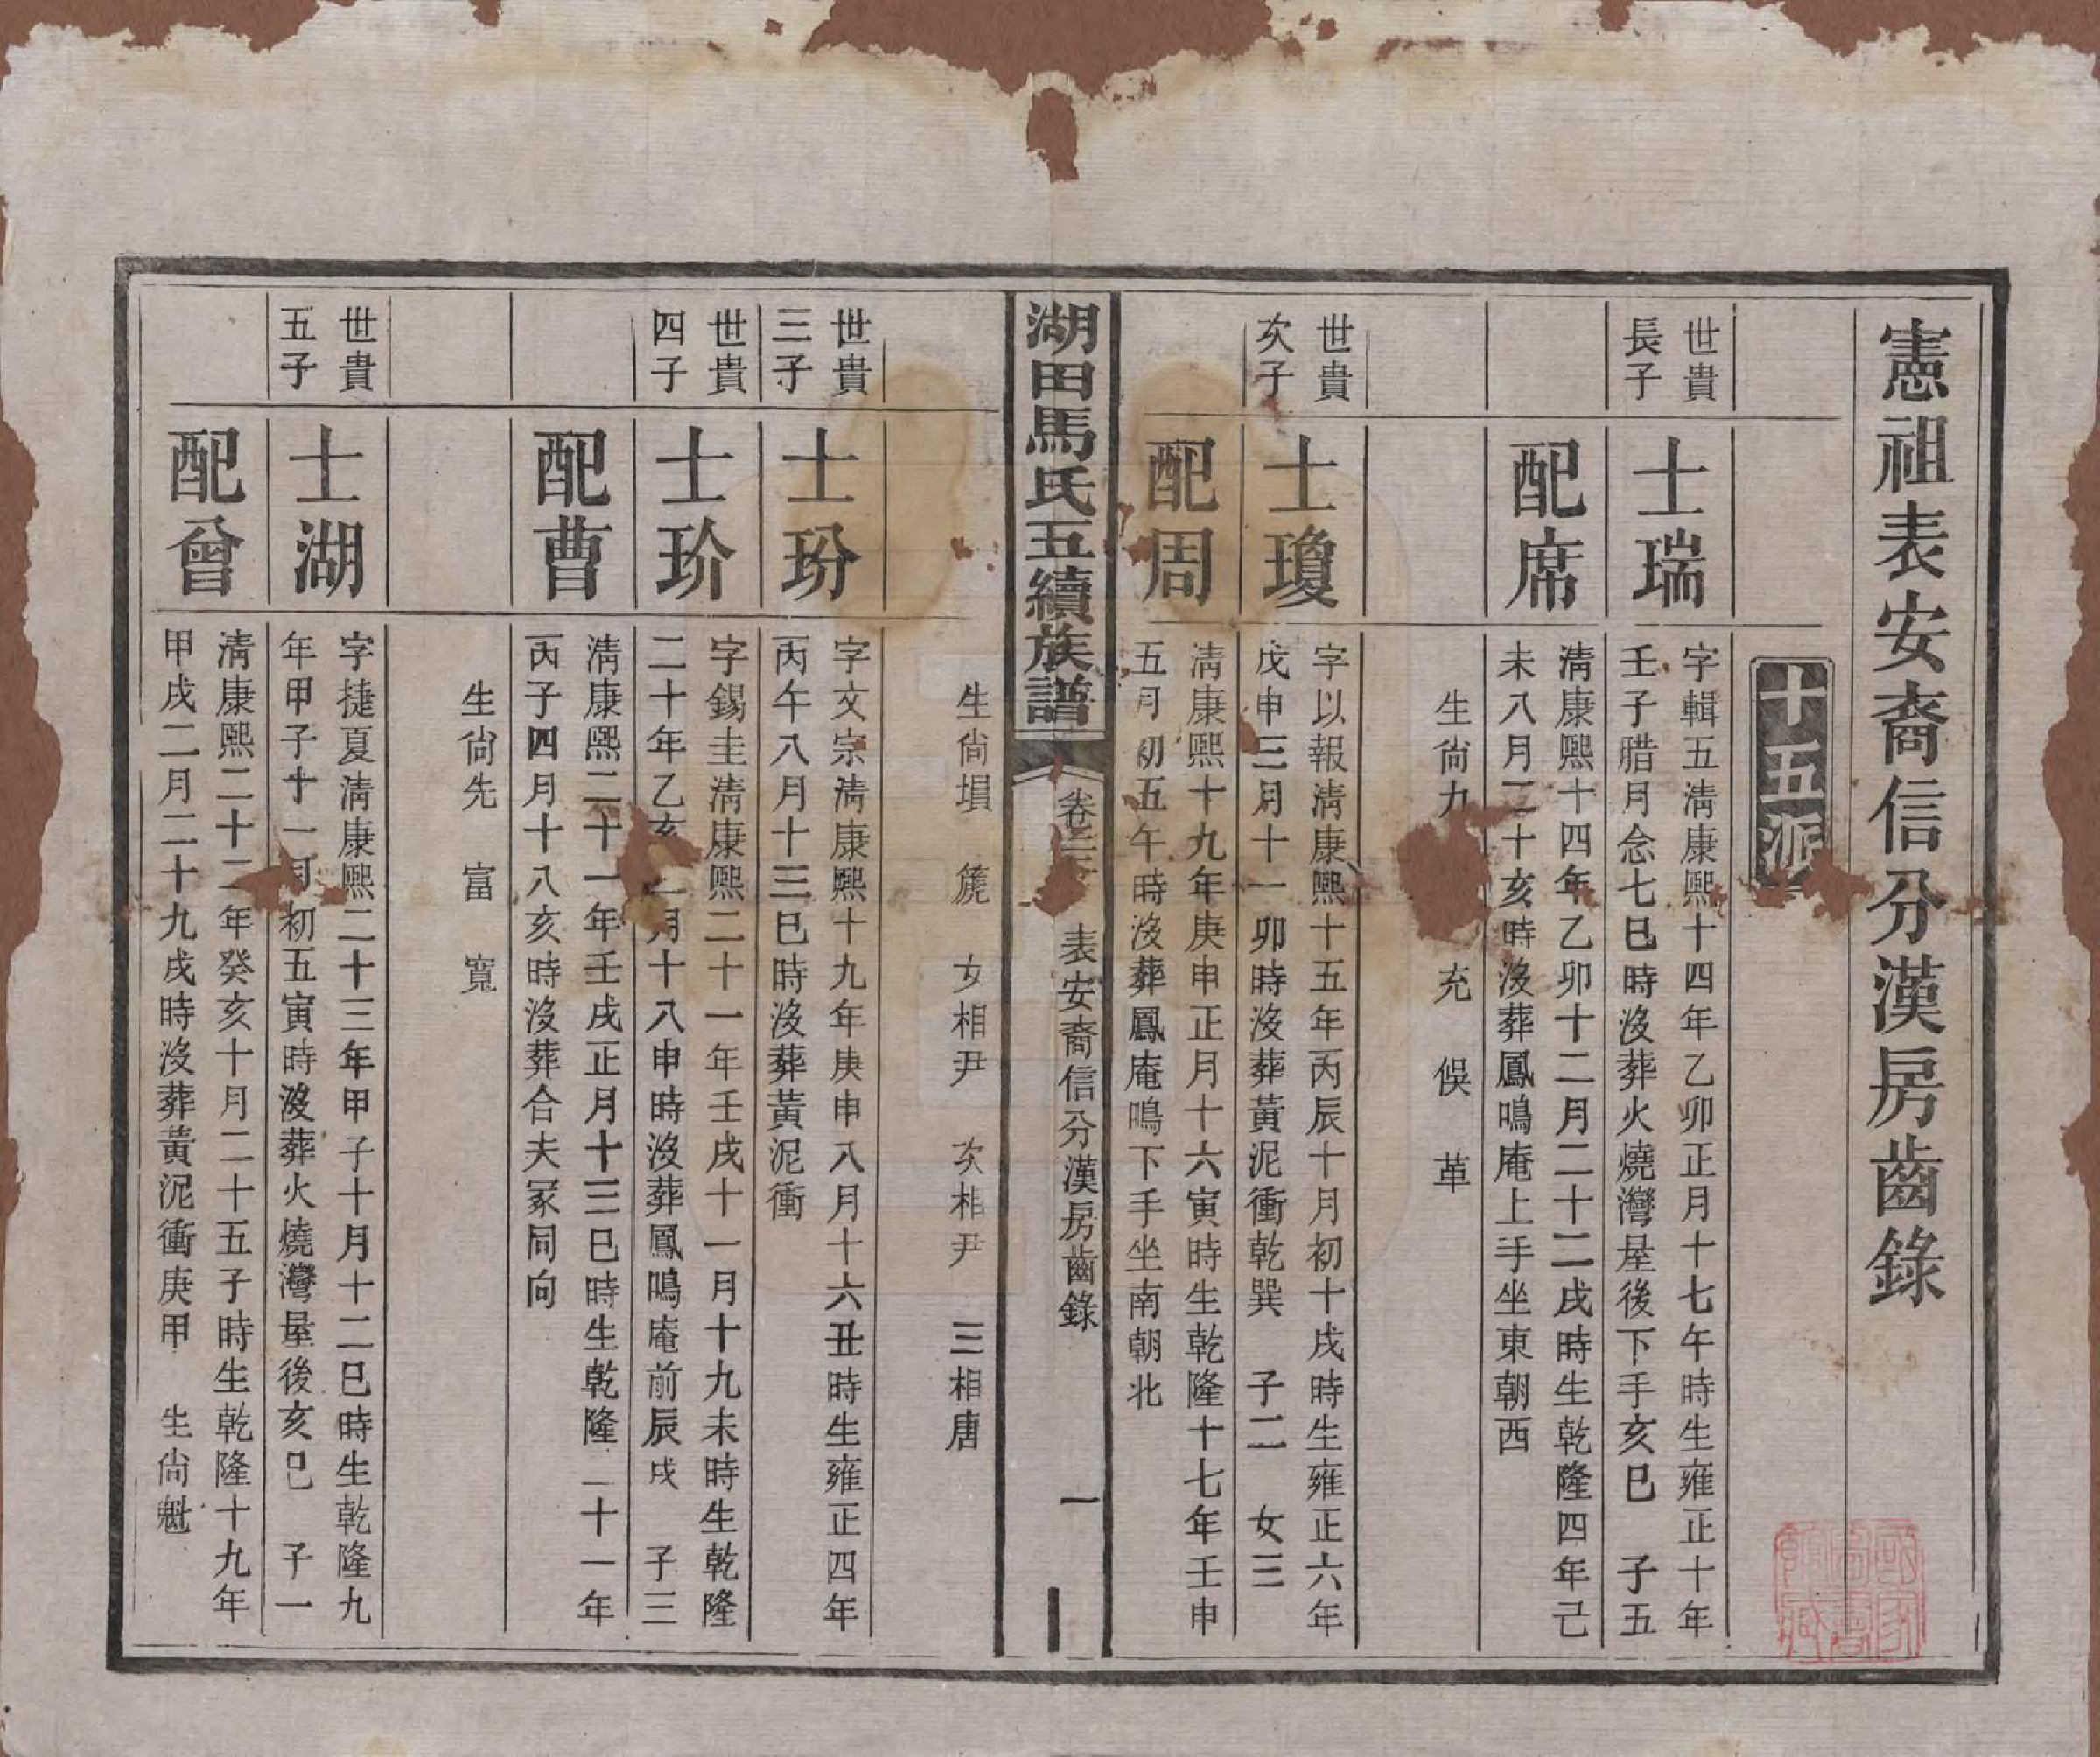 憲祖表安裔信分漢房齒錄
十五派
世貴
長子
士瑞
字輯五淸康熙十四年乙卯正月十七午時生雍正十年
壬子腊月念七巳時沒葬火燒灣屋後下手亥巳　子五
配席
淸康熙十四年乙卯十二月二十二戌時生乾隆四年己
未八月二十亥時沒葬鳳鳴庵上手坐東朝西
生尙九　充　俁　革
世貴
次子
士瓊
字以報淸康熙十五年丙辰十月初十戌時生雍正六年
戊申三月十一卯時沒葬黃泥衝乾巽　子二　女三
配周
淸康熙十九年庚申正月十六寅時生乾隆十七年壬申
五月初五午時沒葬鳳庵鳴下手坐南朝北
湖田馬氏五續族譜
卷　表安裔信分漢房齒錄　一
生尙塤　篪　女相尹　次相尹　三相唐
世貴
三子
士玢
字文宗淸康熙十九年庚申八月十六丑時生雍正四年
丙午八月十三巳時沒葬黃泥衝
世貴
四子
士玠
字錫圭淸康熙二十一年壬戌十一月十九未時生乾隆
二十年乙亥二月十八申時沒葬鳳鳴庵前辰戌　子三
配曹
淸康熙二十一年壬戌正月十三巳時生乾隆二十一年
丙子四月十八亥時沒葬合夫冢同向
生尙先　富　寬
世貴
五子
士湖
字捷夏淸康熙二十三年甲子十月十二巳時生乾隆九
年甲子十一月初五寅時沒葬火燒灣屋後亥巳　子一
配曾
淸康熙二十二年癸亥十月二十五子時生乾隆十九年
甲戌二月二十九戌時沒葬黃泥衝庚甲　生尙魁